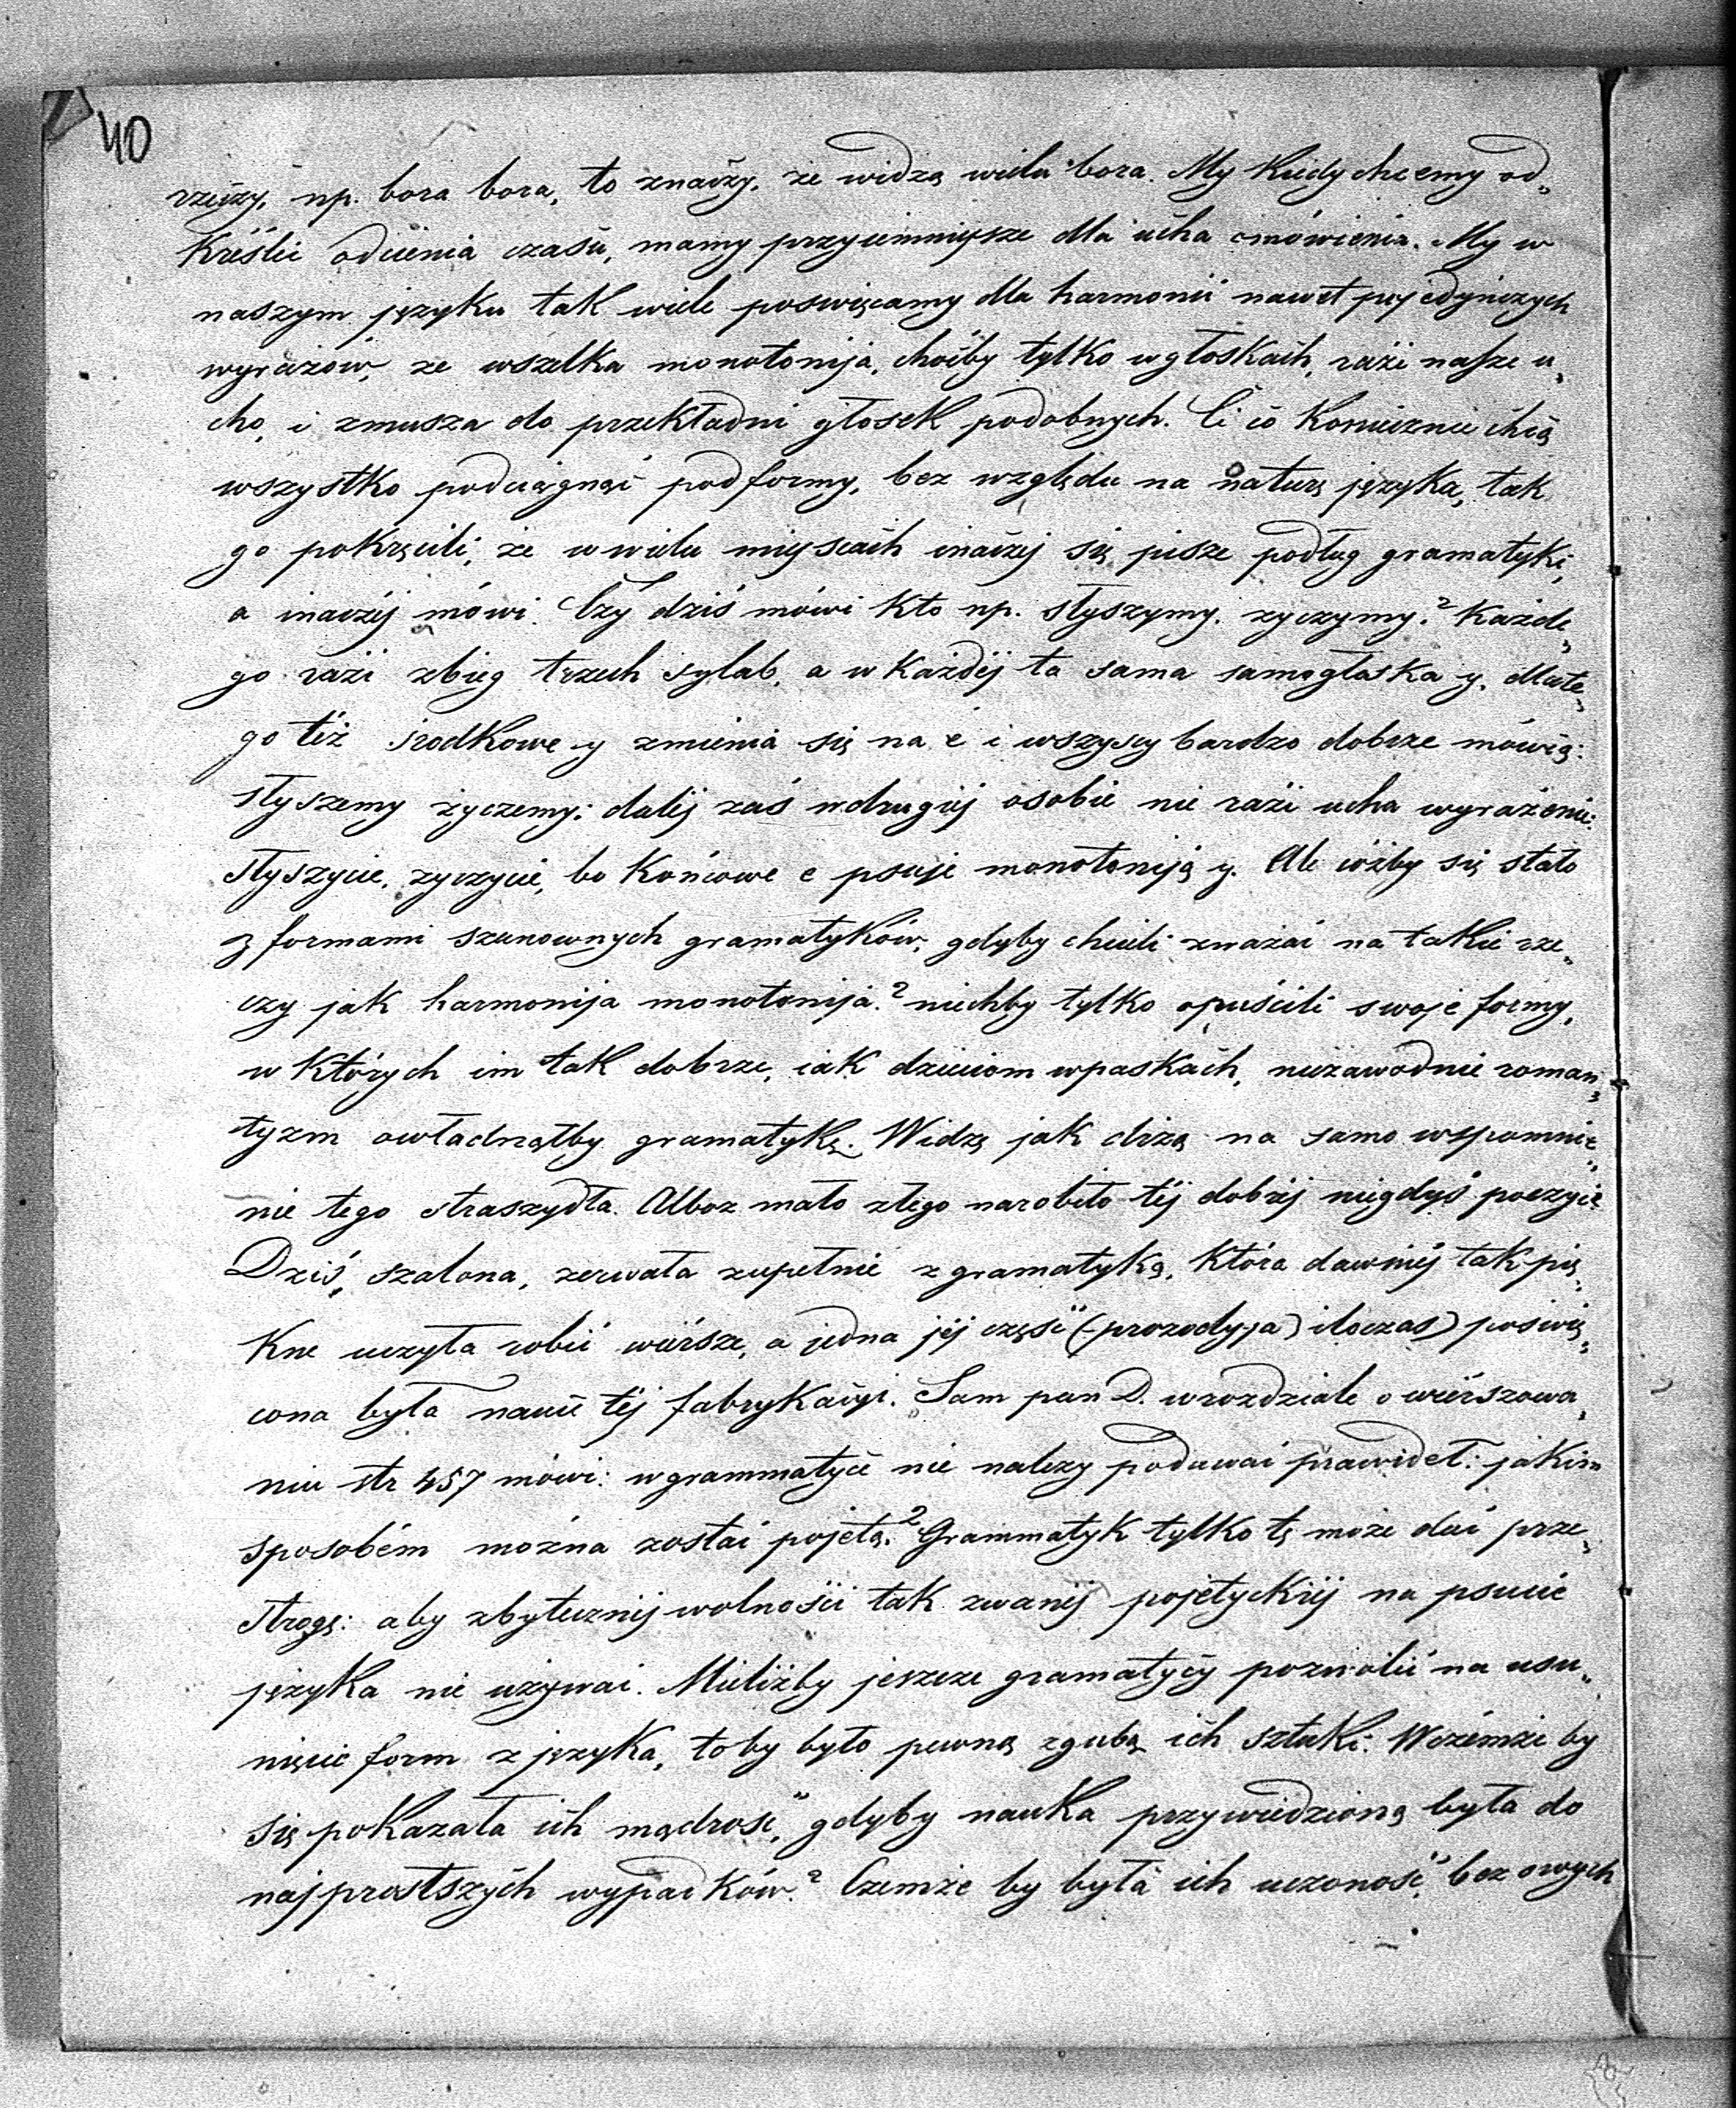 40
rzeczy, np. bora bora, to znaczy, że widzą wielu bora. My kiedy chcemy od„
kreślić odcienia czasu, mamy przyiemniejsze dla ucha omówienia. My w
naszym języku tak wiele poswięcamy dla harmonii nawet pojedyńczych
wyrazów, że wszelka monotonija, choćby tylko w głoskach, razi nasze u„
cho, i zmusza do przekładni głosek podobnych. Ci co koniecznie chcą
wszystko podciągnąć pod formy, bez względu na naturę języka, tak
go pokręcili, że w wielu miejscach inaczej się pisze podług gramatyki,
a inaczéj mówi. Czy dziś mówi kto np. słyszymy, życzymy? Każde„
go razi zbieg trzech sylab, a w każdéj ta sama samogłoska y, dlate„
go też środkowe y zmienia się na e i wszyscy bardzo dobrze mówią:
słyszemy życzemy; daléj zaś w drugiéj osobie nie razi ucha wyrażenie:
słyszycie, życzycie, bo końcowe e psuje monotoniją y. Ale cóżby się stało
z formami szanownych gramatyków, gdyby chcieli zważać na takie rze„
czy jak harmonija monotonija? niechby tylko opuścili swoje formy,
w których im tak dobrze, iak dzieciom w paskach, niezawodnie roman„
tyzm owładnąłby gramatykę. Widzę jak drżą na samo wspomnie„
nie tego straszydła. Alboż mało złego narobiło téj dobréj niegdyś poezyi?
Dziś, szalona, zerwała zupełnie z gramatyką, która dawniéj tak pię„
kne uczyła robić wiérsze, a jedna jéj część (prozodyja) iloczas) poświę„
cona była nauce téj fabrykacyi. Sam pan D. w rozdziale o wiérszowa„
niu str 457 mówi: w grammatyce nie należy podawać prawideł: jakim
sposobém można zostać pojetą? Grammatyk tylko tę może dać prze„
strogę: aby zbyteczniej wolności tak zwanéj pojetyckiéj na psucie
języka nie używać. Mieliżby jeszcze gramatycy pozwolić na usu„
nięcie form z języka, toby było pewną zgubą ich sztuki. W czémże by
się pokazała ich mądrość, gdyby nauka przywiedzioną była do
najprostszych wypadków? Czemże by była ich uczoność, bez owych